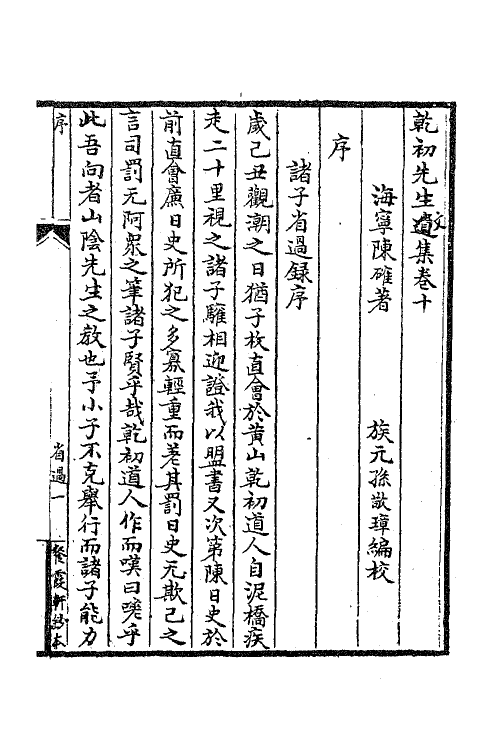 乾初先生遺文集卷十
海寧陳確著　族元孫敬璋編校
序
諸子省過録序
歲己丑觀潮之日猶子枚直會於黄山乾初道人自泥橋疾
走二十里視之諸子羅相迎證我以盟書又次第陳日史於
前直會廉日史所犯之多寡輕重而差其罰日史元欺己之
言司罰元阿衆之筆諸子賢乎哉乾初道人作而嘆曰嗟乎
此吾向者山陰先生之教也予小子不克舉行而諸子能力
序
省過一
餐霞軒鈔本